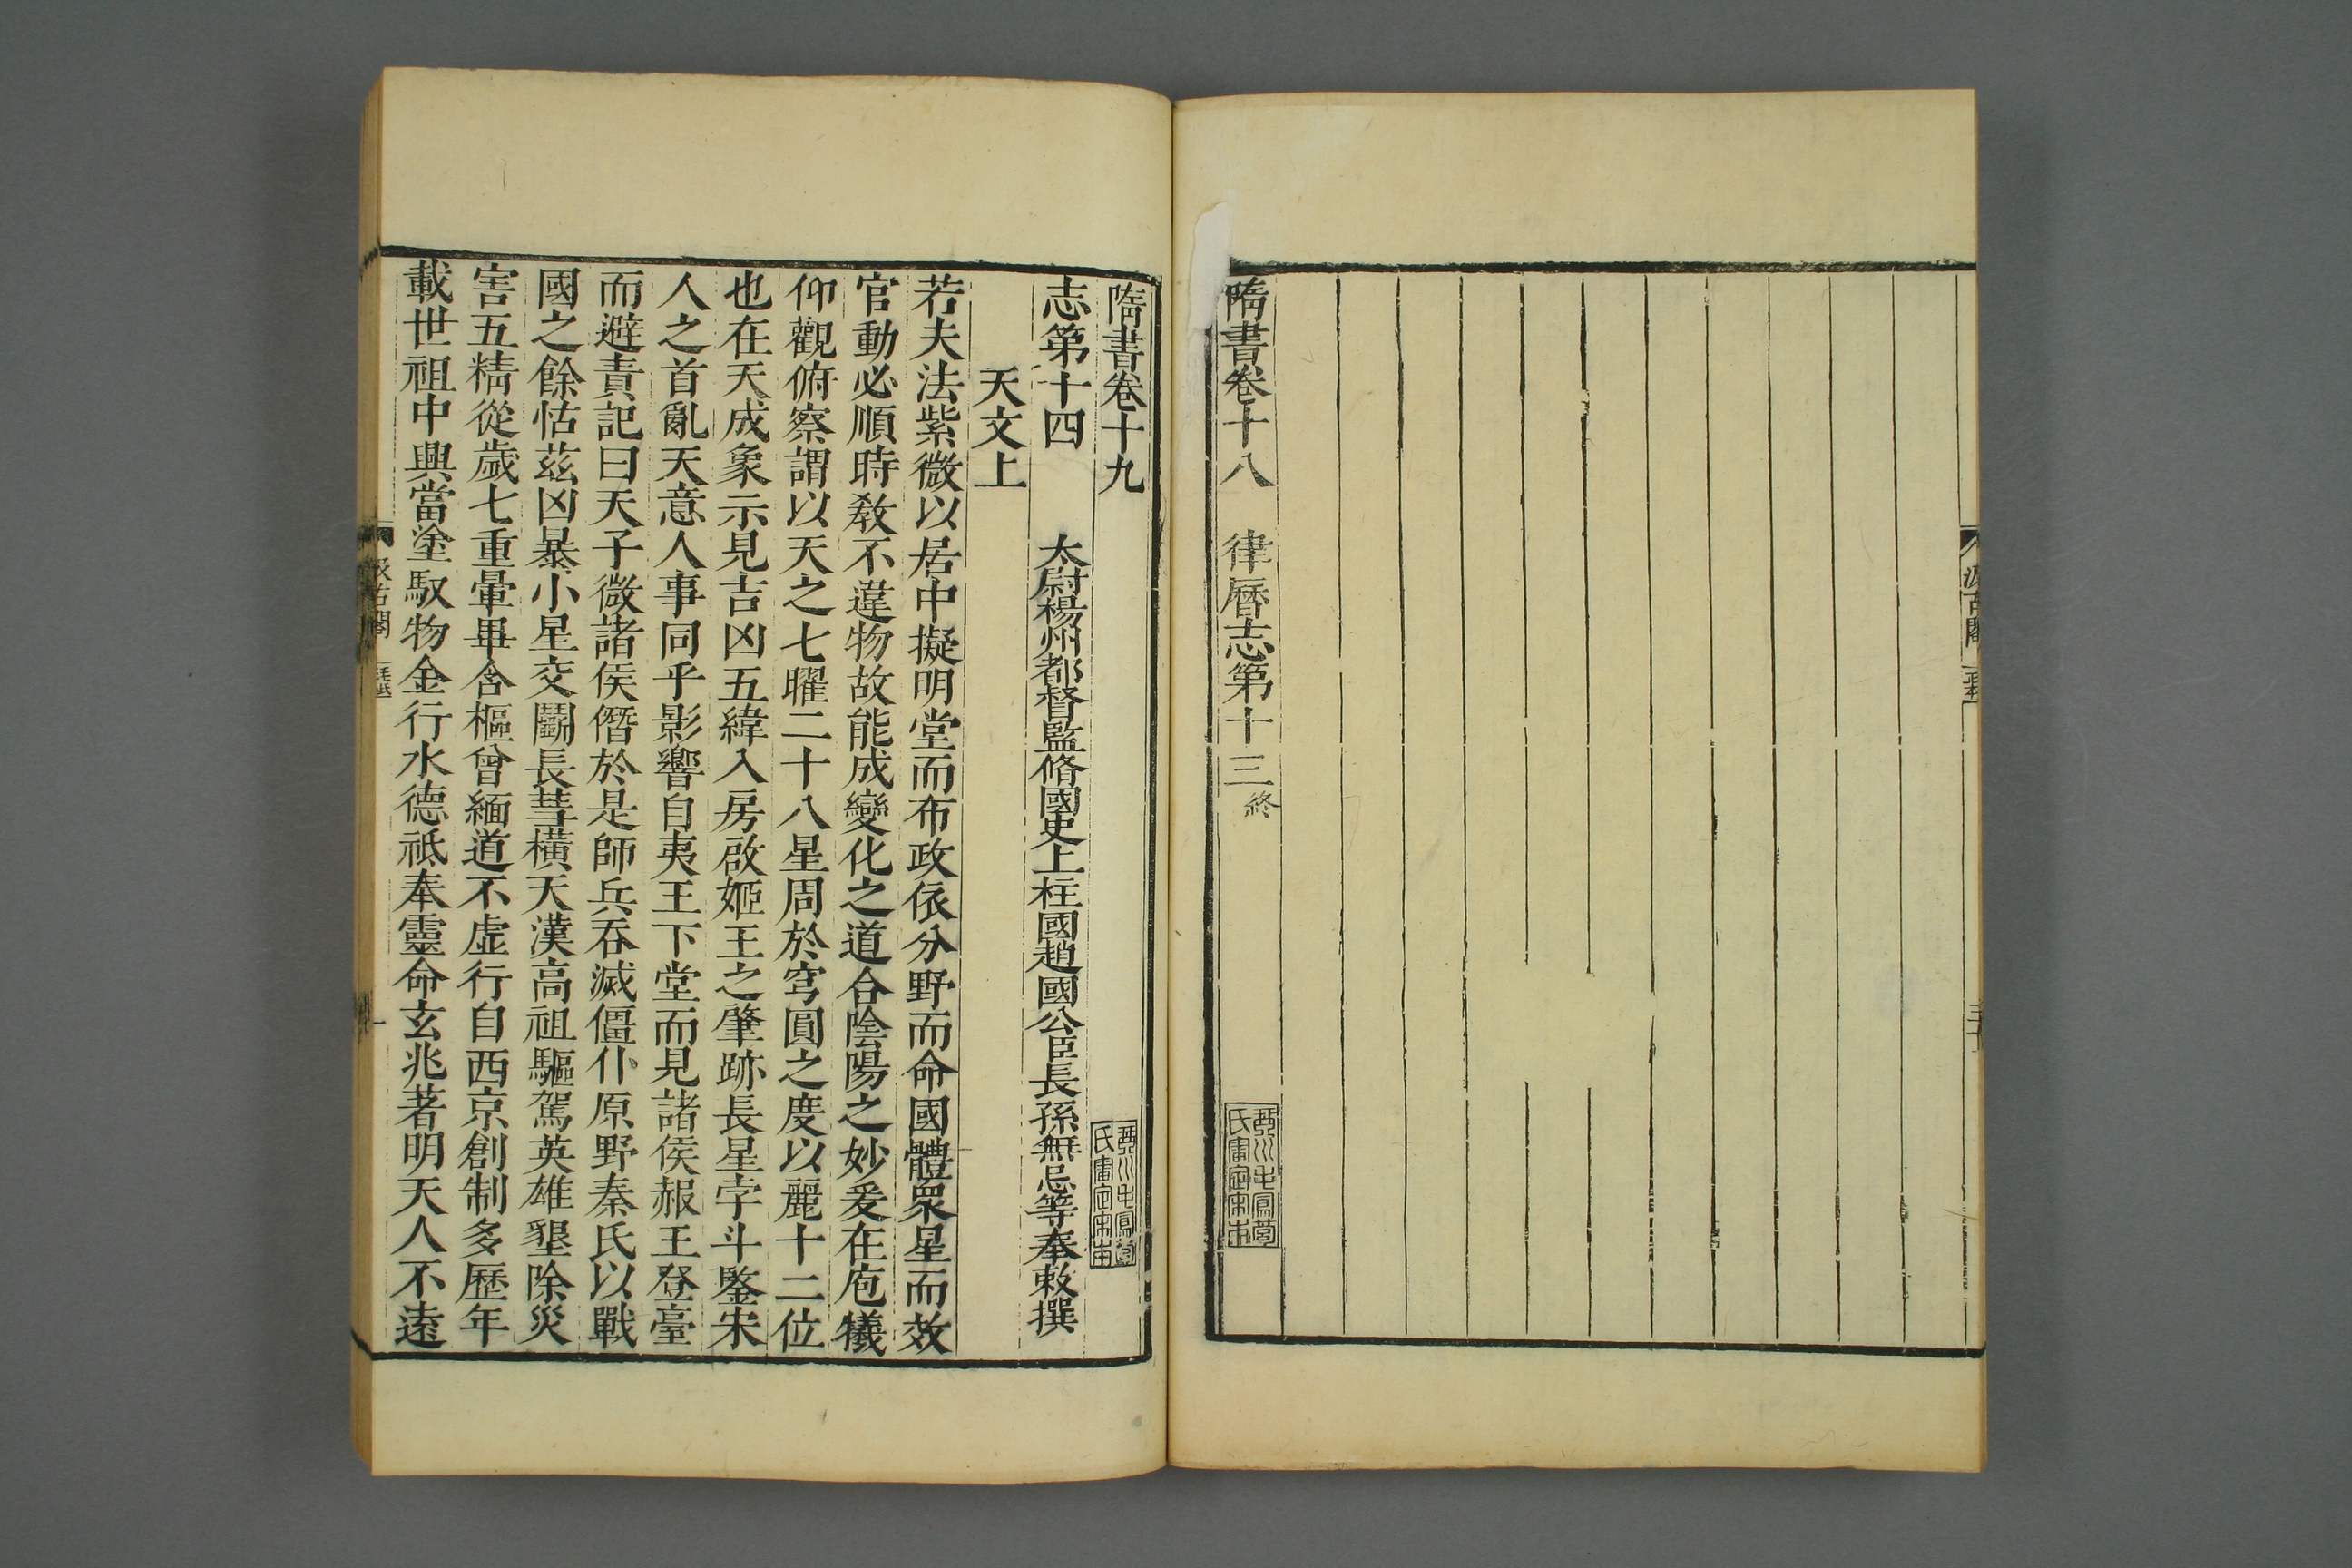 隋書卷十八 律曆志第十三終
隋書卷十九
志第十四 太尉楊州都督監脩國史上柱國趙國公臣長孫無忌等奉敕撰
天文上
若夫法紫微以居中擬明堂而布政依分野而命國體衆星而效
官動必順時教不違物故能成變化之道合陰陽之妙爰在庖犧
仰觀俯察謂以天之七曜二十八星周於穹圓之度以麗十二位
也在天成象示見吉凶五緯入房啟姬王之肇跡長星孛斗鑒宋
人之首亂天意人事同乎影響自夷王下堂而見諸侯赧王登臺
而避責記曰天子微諸侯僭於是師兵吞滅僵仆原野秦氏以戰
國之餘怙茲凶暴小星交鬭長彗橫天漢高祖驅駕英雄墾除災
害五精從歲七重暈畢含樞曾緬道不虛行自西京創制多歷年
載世祖中興當塗馭物金行水德祗奉靈命玄兆著明天人不遠